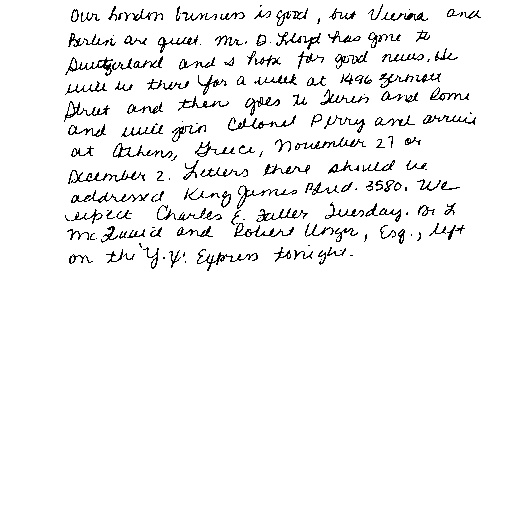 Our London business is good, but Vienna and
Berlin are quiet. Mr. D. Lloyd has gone to
Switzerland and I hope for good news. He
will be there for a week at 1496 Zermott
Street and then goes to Turin and Rome
and will join Colonel Perry and arrive
at Athens, Greece, November 27 or
December 2. Letters there should be
addressed King James Blvd. 3580. We
expect Charles E. Fuller Tuesday. Dr. L
McQuaid and Robert Unger, Esq., left
on the "Y.X." Express tonight.